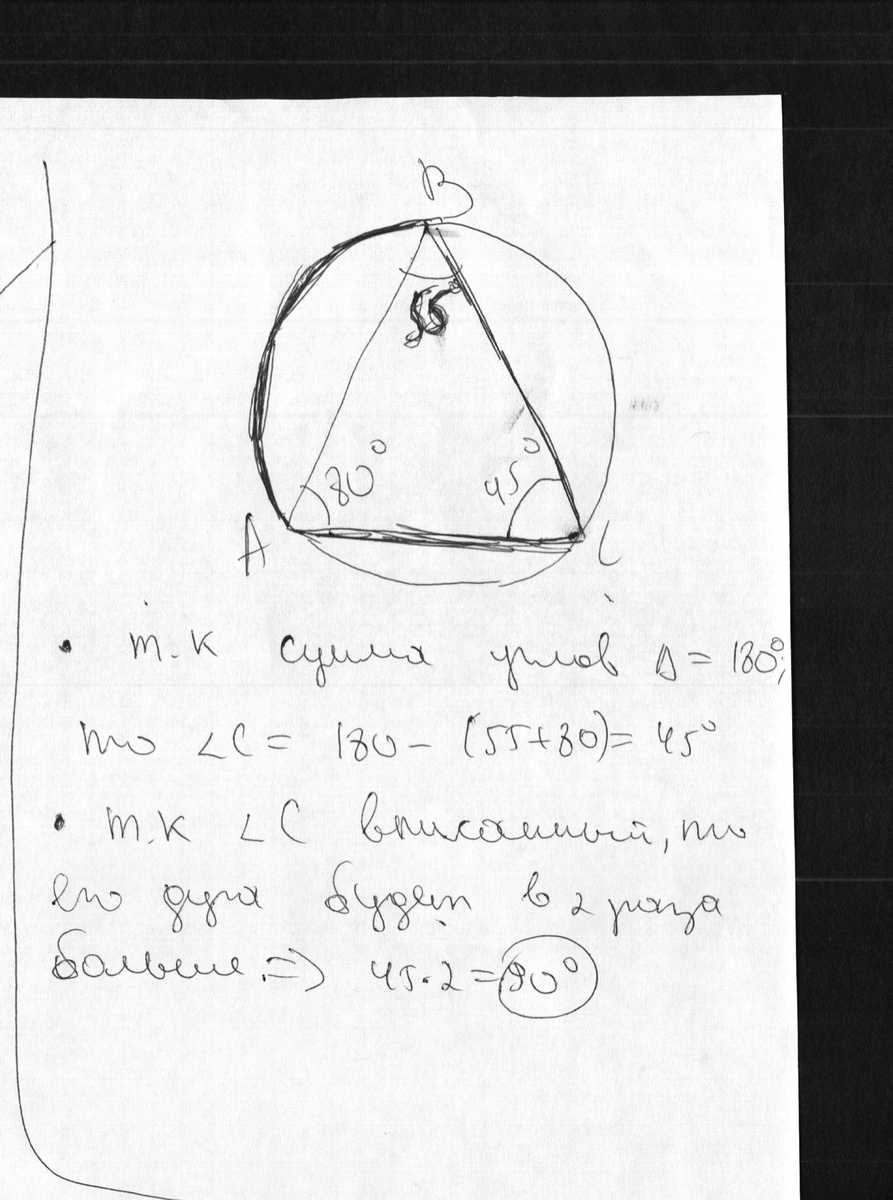 B
55
80°
45°
A
C
• т.к сумма углов Δ = 180°;
то ∠C = 180 - (55+80) = 45°
• т.к ∠C вписанный, то
его дуга будет в 2 раза
больше ⇒ 45·2 = 90°